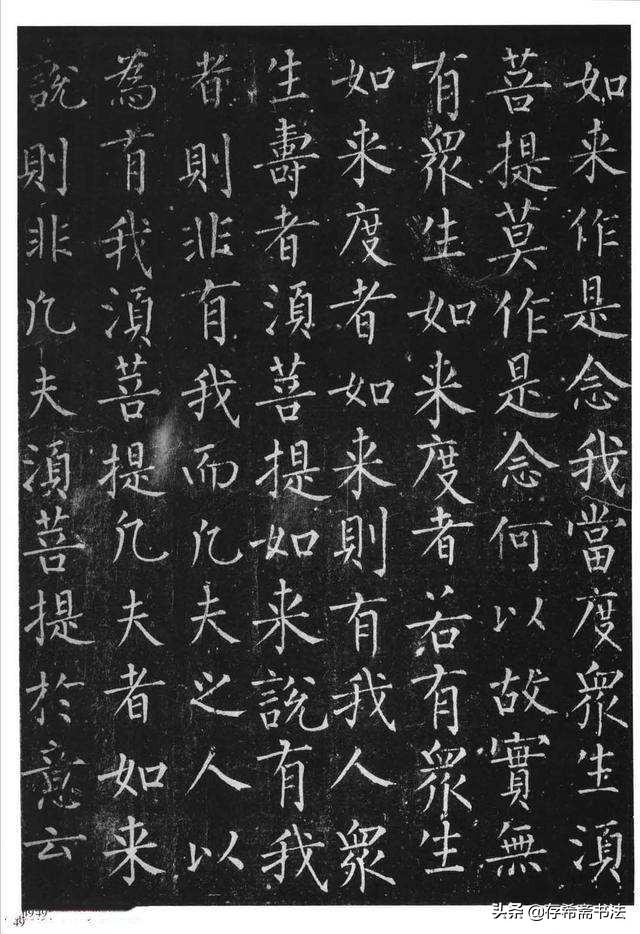 如来作是念我當度眾生須
菩提莫作是念何以故實無
有眾生如来度者若有眾生
如来度者如来則有我人眾
生壽者須菩提如来說有我
者則非有我而凡夫之人以
為有我須菩提凡夫者如来
說則非凡夫須菩提於意云
49
头条 @存希斋书法